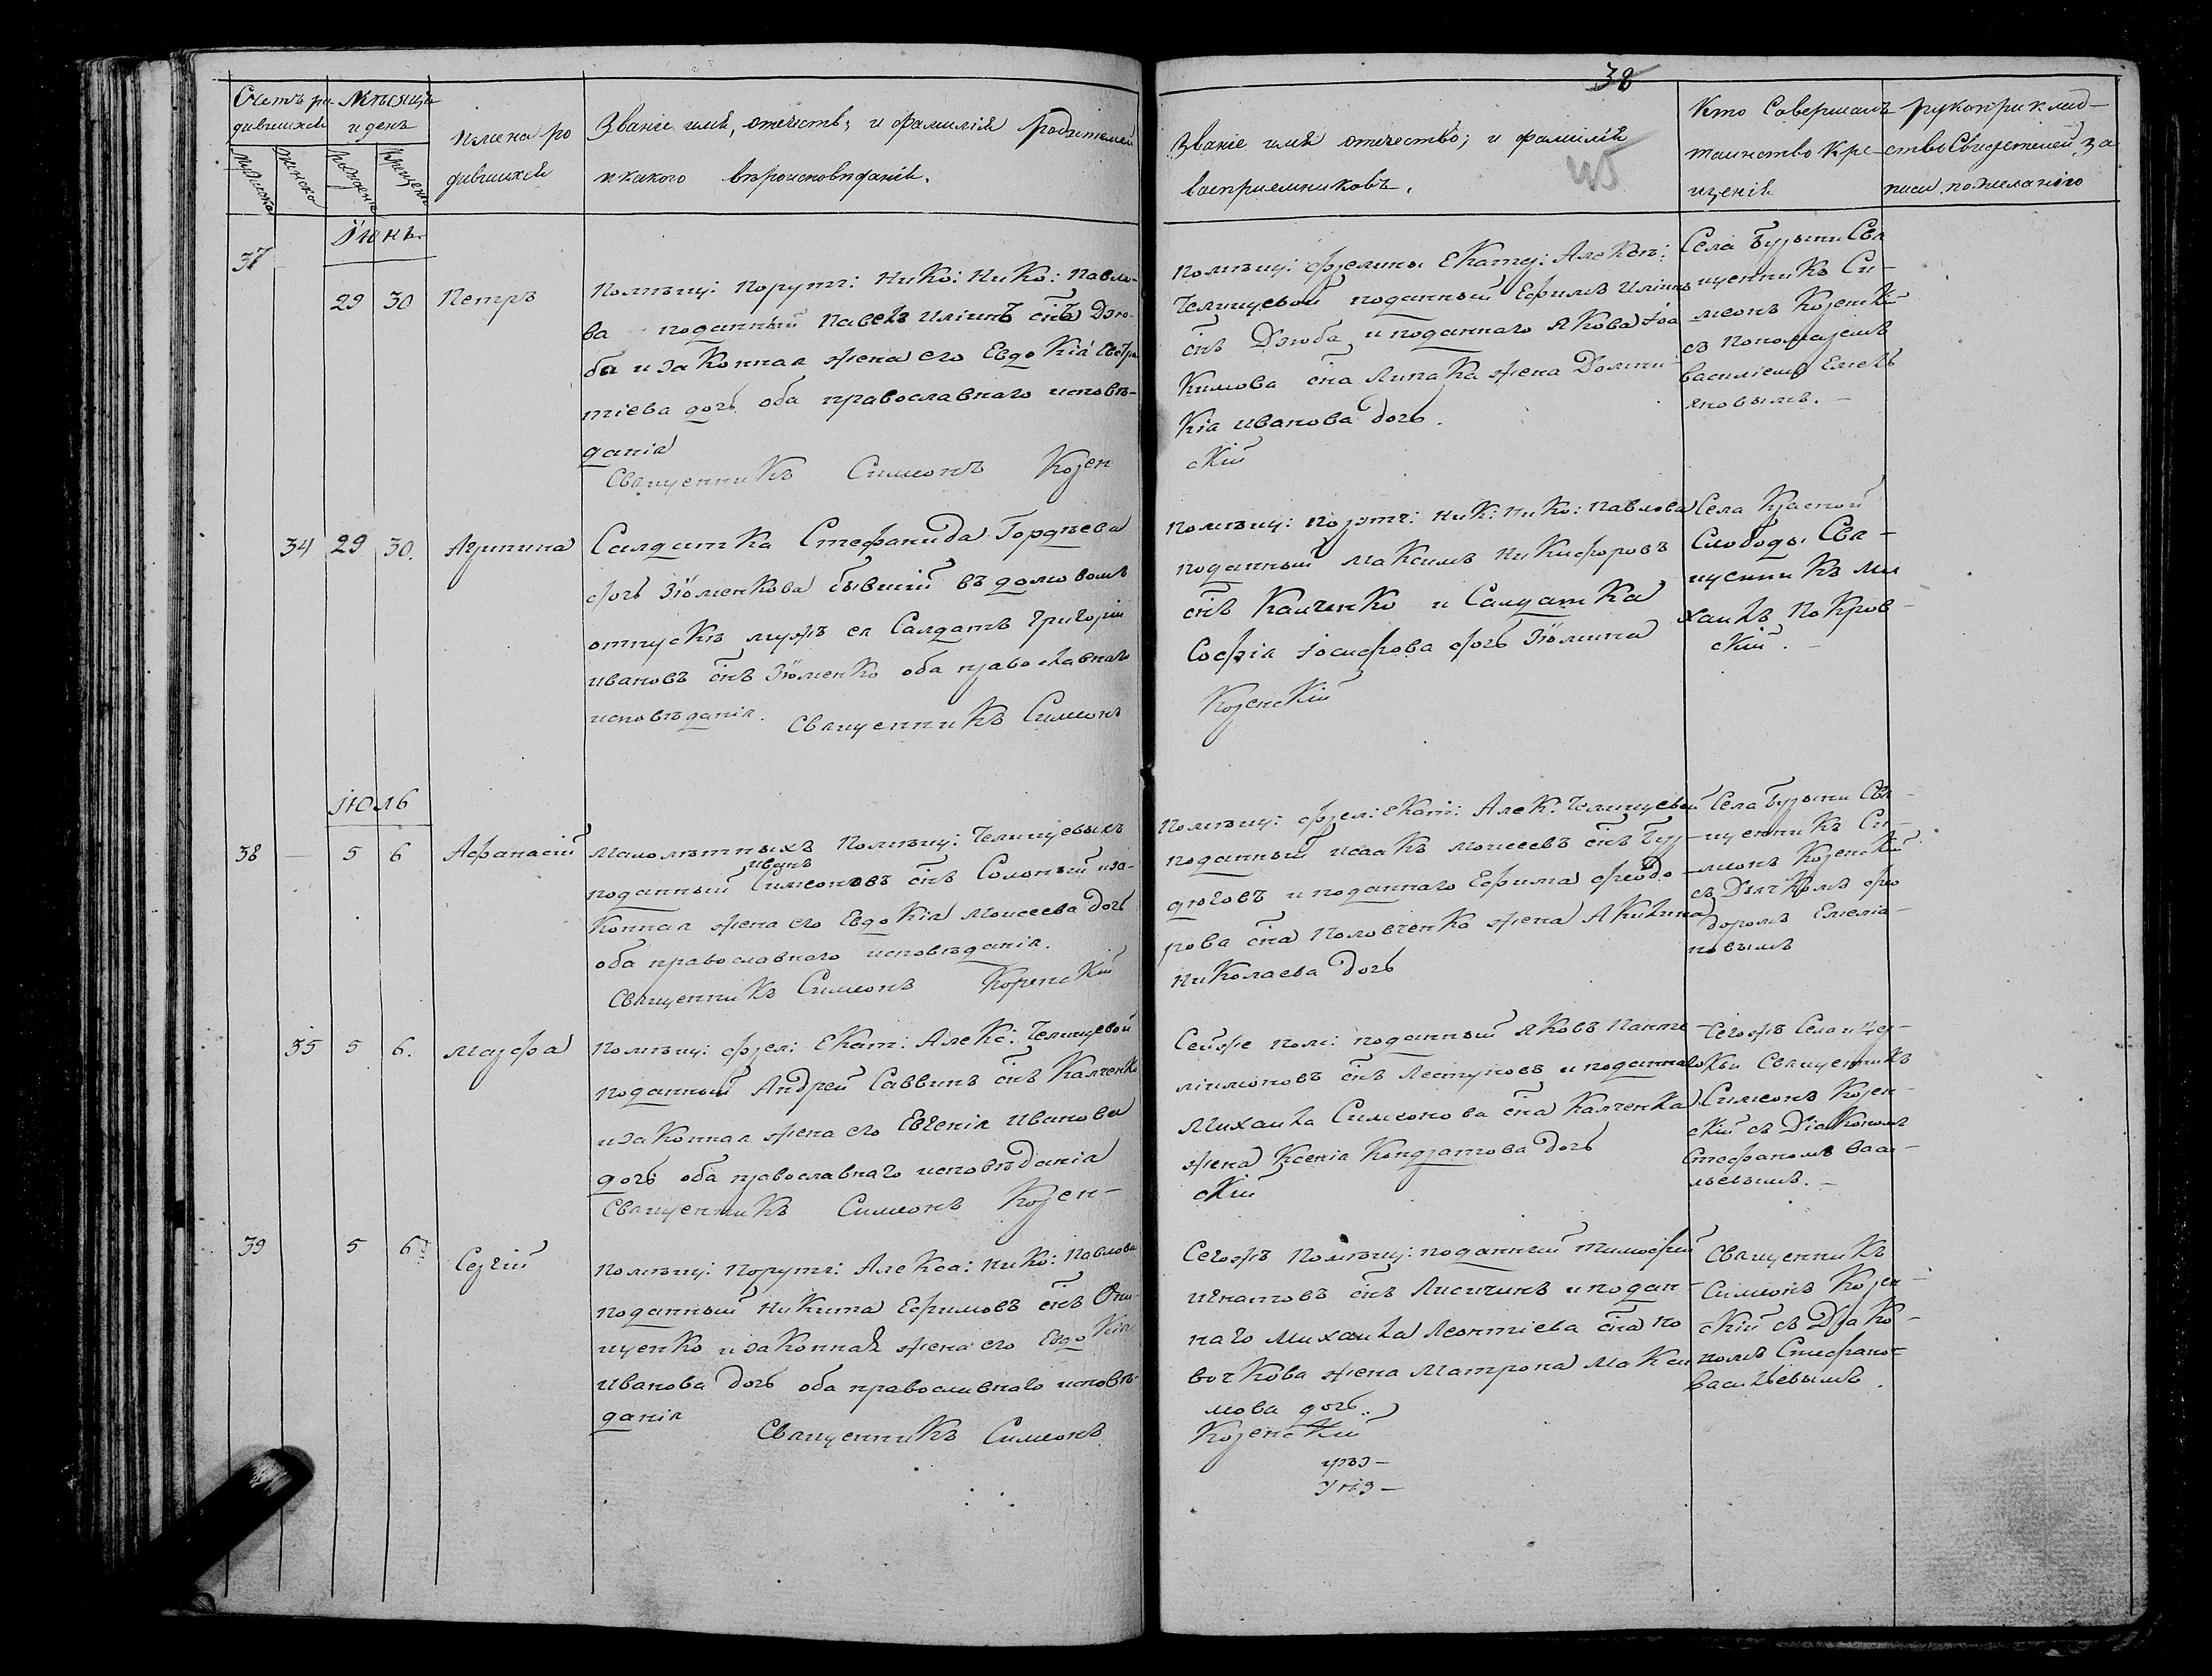 Счетъ ро-
дившихся
Мѣсяцъ
и день
мужеска
женска
рожденія
крещенія
Имена ро
дившихся
Званіе имя, отечеств; и фамилія родителей
и какого вѣроисповѣданія.
Іюнь
37
29 30 Петръ
Помѣщ: Порутч: Нико: Нико: Павло-
ва поданный Павелъ Иліинъ снъ Дзю-
ба и законная жена его Евдокія Евстра
тіева дочь оба православнаго исповѣ-
данія
Священникъ Симеонъ Корен
34 29 30. Агрипина
Салдатка Стефанида Гордѣева
дочь Зюменкова бывшій въ домовомъ
отпускѣ мужъ ея Салдатъ Григорій
Ивановъ снъ Зюменко оба православнаго
исповѣданія. Священникъ Симеонъ
Іюль
38 — 5 6 Афанасій
Малолѣтныхъ Помѣщ: Челищевыхъ
Иванъ
поданный Симеоновъ снъ Солоный и за-
конная жена его Евдокія Моисеева дочь
оба православнаго исповѣданія.
Священникъ Симеонъ Коренскій
35 5 6. Марфа
Помѣщ: фрел: Екат: Алекс: Челищевой
поданный Андрей Саввинъ снъ Калченко
и законная жена его Евгенія Иванова
дочь оба православнаго исповѣданія
Священникъ Симеонъ Корен-
39 5 6. Сергій
Помѣщ: Порутч: Алекса: Нико: Павлова
поданный Никита Ефимовъ снъ Они-
щенко и законная жена его Евдокія
Иванова дочь оба православнаго исповѣ-
данія
Священникъ Симеонъ
38
Званіе имя отечество; и фамилія
воспріемниковъ.
Кто Совершалъ
таинство Кре-
щенія
рукоприклад-
ство Свидетелей за
писи по желанію
Помѣщ: фрелины Екатер: Алексѣ:
Челищевой поданный Ефимъ Иліинъ
снъ Дзюба и поданнаго Якова Іоа
кимова сна Липака жена Домни
кія Иванова дочь.
скій
Села Бурыни Свя
щенникъ Си-
меонъ Коренскій
съ Пономаремъ
Василіемъ Емель
яновымъ. —
Помѣщ: Порутч: Ник: Нико: Павлова
поданный Максимъ Никифоровъ
снъ Калченко и Салдатка
Софія Іосифова дочь Зюмина
Коренскій
Села Красной
Слободы Свя-
щенникъ Ми
хаилъ Покров-
скій. —
Помѣщ: фрел: Екат: Алек: Челищевой
поданный Исаакъ Моисеевъ снъ Бур-
дюговъ и поданнаго Ефима Феодо-
рова сна Половченко жена Акилина
Николаева дочь
Села Бурыни Свя-
щенникъ Си-
меонъ Коренскій
съ Дьячкомъ Фео
доромъ Емелія-
новымъ
Сейже пом: поданный Яковъ Панте-
лиимоновъ снъ Лестуновъ и поданнаго
Михаила Симеонова сна Калченка
жена Ксенія Кондратова дочь
скій
Сегожъ Села и Цер-
кви Священникъ
Симеонъ Корен-
скій съ Діакономъ
Стефаномъ Васи-
льевымъ. —
Сегожъ Помѣщ: поданный Тимофей
Игнатовъ снъ Лисичинъ и подан-
наго Михаила Леонтіева сна Но
вочкова жена Матрона Макси
мова дочь.
Коренскій
Священникъ
Симеонъ Корен-
скій съ Діако-
номъ Стефано-
Васильевымъ.